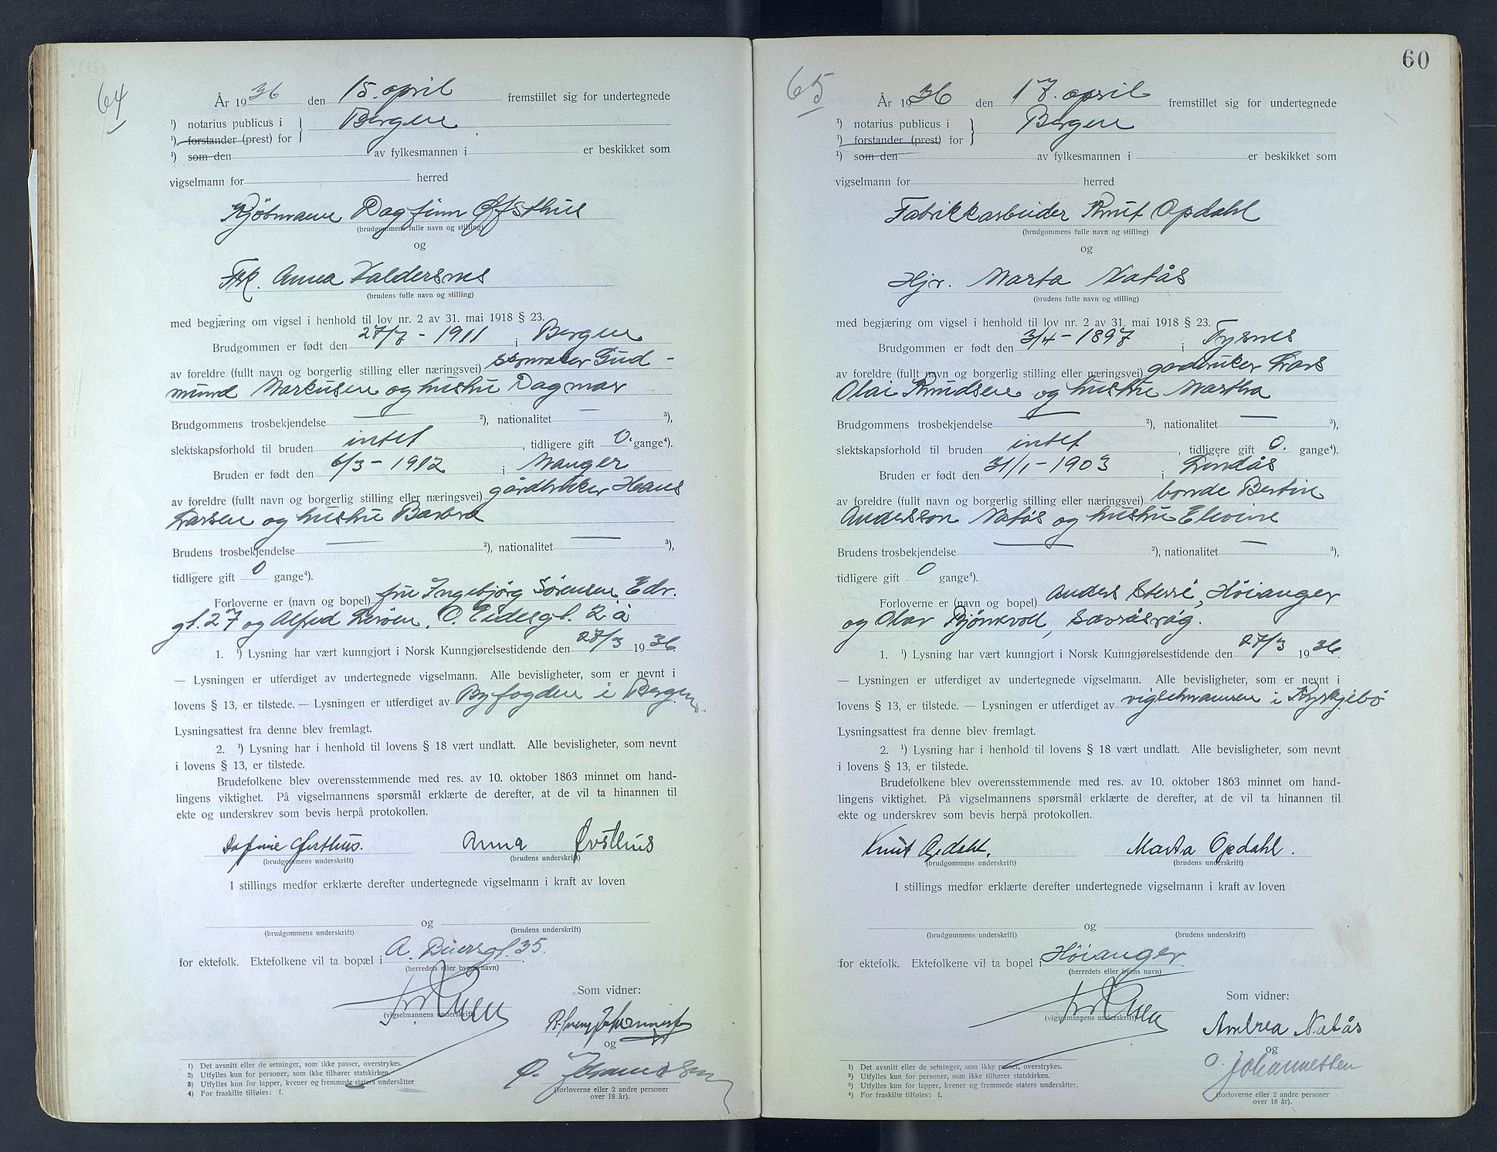 64
År 1936 den 15. april fremstillet sig for undertegnede
¹) notarius publicus i } Bergen
¹) forstander (prest) for
¹) som den av fylkesmannen i er beskikket som
vigselmann for herred
Kjøbmann Dagfinn Øfsthus
(brudgommens fulle navn og stilling)
og
Frk. Anna Valdersnes
(brudens fulle navn og stilling)
med begjæring om vigsel i henhold til lov nr. 2 av 31. mai 1918 § 23.
Brudgommen er født den 27/7 - 1911 i Bergen
av foreldre (fullt navn og borgerlig stilling eller næringsvei) Gud-
mund Markusen og hustru Dagmar
Brudgommens trosbekjendelse — ²), nationalitet — ³),
slektskapsforhold til bruden intet, tidligere gift 0. gange⁴).
Bruden er født den 6/3 - 1912 i Manger
av foreldre (fullt navn og borgerlig stilling eller næringsvei) gårdbruker Hans
Larsen og hustru Barbra
Brudens trosbekjendelse — ²), nationalitet — ³),
tidligere gift 0 gange⁴).
Forloverne er (navn og bopel) fru Ingebjørg Sørensen, Edv.
gt. 27 og Alfred Lerøen, O. Eidesgt. 2 a
1. ¹) Lysning har vært kunngjort i Norsk Kunngjørelsestidende den 28/3 1936
— Lysningen er utferdiget av undertegnede vigselmann. Alle bevisligheter, som er nevnt i
lovens § 13, er tilstede. — Lysningen er utferdiget av Byfogden i Bergen.
Lysningsattest fra denne blev fremlagt.
2. ¹) Lysning har i henhold til lovens § 18 vært undlatt. Alle bevisligheter, som nevnt
i lovens § 13, er tilstede.
Brudefolkene blev overensstemmende med res. av 10. oktober 1863 minnet om hand-
lingens viktighet. På vigselmannens spørsmål erklærte de derefter, at de vil ta hinannen til
ekte og underskrev som bevis herpå protokollen.
Dagfinn Øvsthus. Anna Øvsthus
(brudgommens underskrift) (brudens underskrift)
I stillings medfør erklærte derefter undertegnede vigselmann i kraft av loven
og
(brudgommens underskrift) (brudens underskrift)
for ektefolk. Ektefolkene vil ta bopæl i A. Biiersgt. 35.
(herredets eller byens navn)
Som vidner:
(vigselmannens underskrift)
og
(forloverne eller 2 andre personer
over 18 år).
1) Det avsnitt eller de setninger, som ikke passer, overstrykes.
2) Utfylles kun for personer, som ikke tilhører statskirken.
3) Utfylles kun for lapper, kvener og fremmede staters undersåtter
4) For fraskilte tilføies: f.
60
65
År 1936 den 17. april fremstillet sig for undertegnede
¹) notarius publicus i } Bergen
¹) forstander (prest) for
¹) som den av fylkesmannen i er beskikket som
vigselmann for herred
Fabrikkarbeider Knut Opdahl
(brudgommens fulle navn og stilling)
og
Hjv. Marta Natås
(brudens fulle navn og stilling)
med begjæring om vigsel i henhold til lov nr. 2 av 31. mai 1918 § 23.
Brudgommen er født den 3/4 - 1897 i Tysnes
av foreldre (fullt navn og borgerlig stilling eller næringsvei) gardbruker Lars
Olai Knudsen og hustru Martha
Brudgommens trosbekjendelse — ²), nationalitet — ³),
slektskapsforhold til bruden intet, tidligere gift 0. gange⁴).
Bruden er født den 31/1 - 1903 i Lindås
av foreldre (fullt navn og borgerlig stilling eller næringsvei) bonde Bertin
Andersson Natås og hustru Elevine
Brudens trosbekjendelse — ²), nationalitet — ³),
tidligere gift 0 gange⁴).
Forloverne er (navn og bopel) Anders Sterri, Høianger
og Olav
1. ¹) Lysning har vært kunngjort i Norsk Kunngjørelsestidende den 27/3 1936.
— Lysningen er utferdiget av undertegnede vigselmann. Alle bevisligheter, som er nevnt i
lovens § 13, er tilstede. — Lysningen er utferdiget av vigselmannen i Kyrkjebø
Lysningsattest fra denne blev fremlagt.
2. ¹) Lysning har i henhold til lovens § 18 vært undlatt. Alle bevisligheter, som nevnt
i lovens § 13, er tilstede.
Brudefolkene blev overensstemmende med res. av 10. oktober 1863 minnet om hand-
lingens viktighet. På vigselmannens spørsmål erklærte de derefter, at de vil ta hinannen til
ekte og underskrev som bevis herpå protokollen.
Knut Opdahl. Marta Opdahl.
(brudgommens underskrift) (brudens underskrift)
I stillings medfør erklærte derefter undertegnede vigselmann i kraft av loven
og
(brudgommens underskrift) (brudens underskrift)
for ektefolk. Ektefolkene vil ta bopel i Høianger.
(herredets eller byens navn)
Som vidner:
(vigselmannens underskrift)
Andrea Natås
og
O. Johannessen
(forloverne eller 2 andre personer
over 18 år).
¹) Det avsnitt eller de setninger, som ikke passer, overstrykes.
²) Utfylles kun for personer, som ikke tilhører statskirken.
³) Utfylles kun for lapper, kvener og fremmede staters undersåtter.
⁴) For fraskilte tilføies: f.